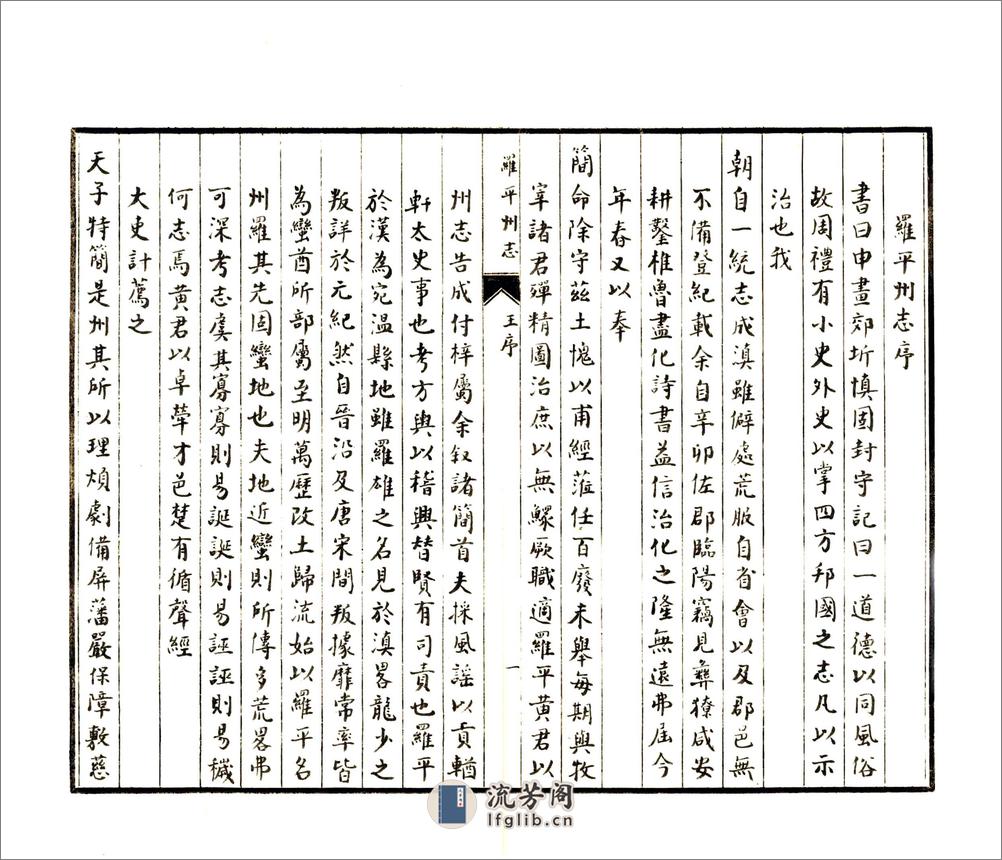 羅平州志序
書曰申畫郊圻慎固封守記曰一道德以同風俗
故周禮有小史外史以掌四方邦國之志凡以示
治也我
朝自一統志成滇雖僻處荒服自省會以及郡邑無
不備登紀載余自辛卯佐郡臨陽竊見彝獠咸安
耕鑿椎魯盡化詩書益信治化之隆無遠弗屆今
年春又以奉
簡命除守茲土愧以甫經蒞任百廢未舉每期與牧
宰諸君殫精圖治庶以無鰥厥職適羅平黃君以
羅平州志
王序
一
州志告成付梓屬余叙諸簡首夫採風謡以貢輶
軒太史事也考方輿以稽興替賢有司責也羅平
於漢為宛溫縣地雖羅雄之名見於滇畧龍少之
叛詳於元紀然自晉沿及唐宋間叛據靡常率皆
為蠻酋所部屬至明萬歷改土歸流始以羅平名
州羅其先固蠻地也夫地近蠻則所傳多荒畧弗
可深考志寞其寡寡則易誕誕則易誣誣則易穢
何志焉黃君以卓犖才邑楚有循聲經
大吏計薦之
天子特簡是州其所以理煩劇備屏藩嚴保障敷慈
流芳阁
lfglib.cn